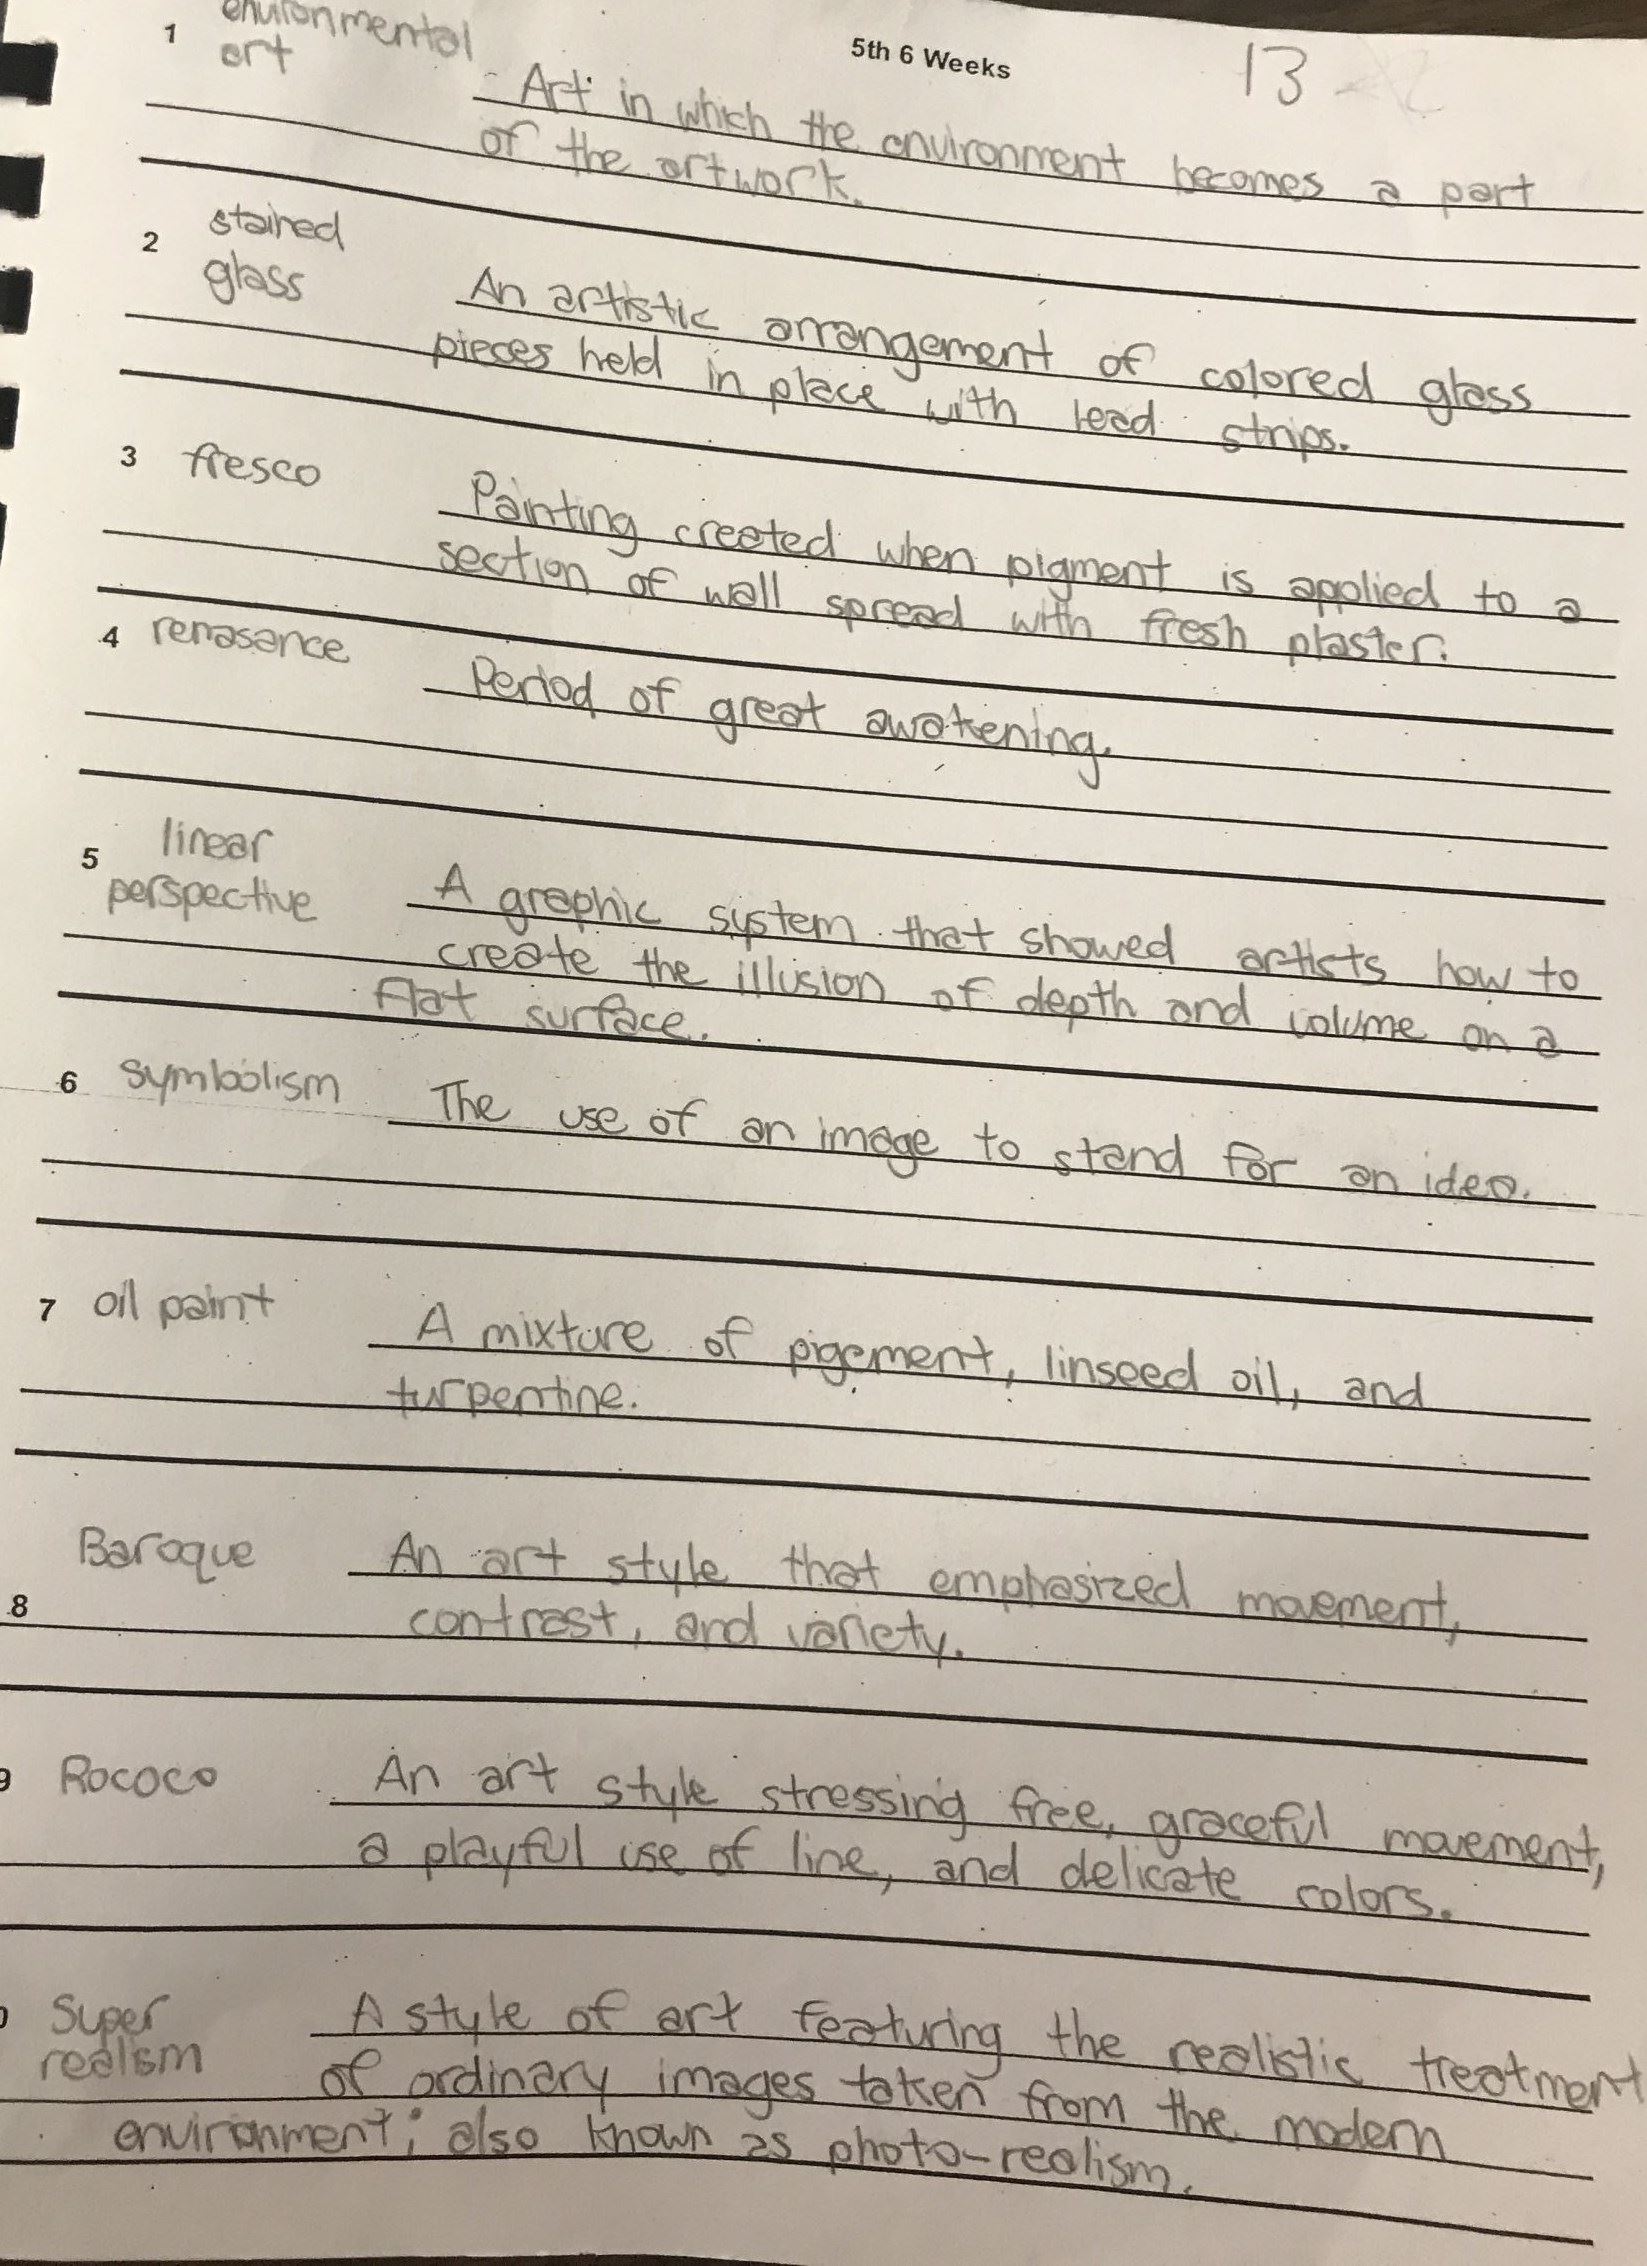 5th 6 Weeks
13
1
environmental
art
- Art in which the environment becomes a part
of the artwork.
2
stained
glass
An artistic arrangement of colored glass
pieces held in place with lead strips.
3 fresco
Painting created when pigment is applied to a
section of wall spread with fresh plaster.
4 renasance
Period of great awakening.
5
linear
perspective
A graphic system that showed artists how to
create the illusion of depth and volume on a
flat surface.
6 symbolism
The use of an image to stand for an idea.
7 oil paint
A mixture of pigement, linseed oil, and
turpentine.
8
Baroque
An art style that emphasized movement,
contrast, and variety.
9 Rococo
An art style stressing free, graceful movement,
a playful use of line, and delicate colors.
Super
realism
A style of art featuring the realistic treatment
of ordinary images taken from the modern
environment; also known as photo-realism.